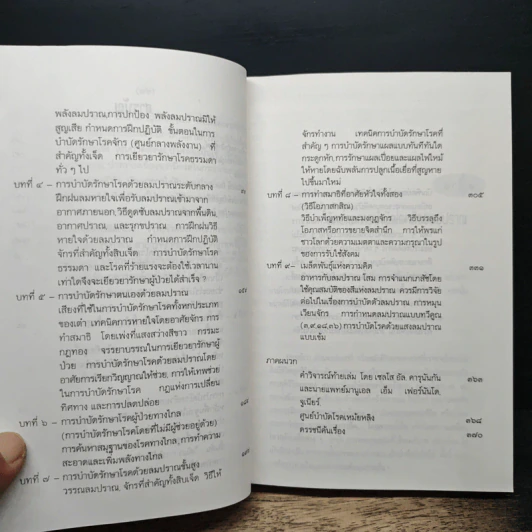 พลังลมปราณ,การปกป้อง พลังลมปราณมิให้
สูญเสีย กำหนดการฝึกปฏิบัติ ขั้นตอนในการ
บำบัดรักษาโรคจักร (ศูนย์กลางพลังงาน) ที่
สำคัญทั้งเจ็ด การเยียวยารักษาโรคธรรมดา
ทั่ว ๆ ไป
บทที่ ๔ – การบำบัดรักษาโรคด้วยลมปราณระดับกลาง
ฝึกฝนลมหายใจเพื่อรับลมปราณเข้ามาจาก
อากาศภายนอก,วิธีดูดซับลมปราณจากพื้นดิน,
อากาศปราณ, และรุกขปราณ การฝึกฝนวิธี
หายใจด้วยลมปราณ กำหนดการฝึกปฏิบัติ
จักรที่สำคัญทั้งสิบเจ็ด การบำบัดรักษาโรค
ธรรมดา และโรคที่ร้ายแรงจะต้องใช้เวลานาน
เท่าใดจึงจะเยียวยาผู้ป่วยได้สำเร็จ ?
บทที่ ๕ – การบำบัดรักษาตนเองด้วยลมปราณ
เสียงที่ใช้ในการบำบัดรักษาโรคทั้งหกประเภท
ของเต๋า เทคนิคการหายใจโดยอาศัยจักร การ
ทำสมาธิ โดยเพ่งที่แสงสว่างสีขาว กรรมะ
กฎทอง จรรยาบรรณในการเยียวยารักษาผู้
ป่วย การบำบัดรักษาโรคด้วยลมปราณโดย
อาศัยการเรียกวิญญาณให้ช่วย, การให้เทพช่วย
ในการบำบัดรักษาโรค กฎแห่งการเปลี่ยน
ทิศทาง และการปลดปล่อย
บทที่ ๖ – การบำบัดรักษาโรคผู้ป่วยทางไกล
(การบำบัดรักษาโรคโดยที่ไม่มีผู้ช่วยอยู่ด้วย)
การค้นหาสมุฐานของโรคทางไกล,การทำความ
สะอาดและเพิ่มพลังทางไกล
บทที่ ๗ – การบำบัดรักษาโรคด้วยลมปราณขั้นสูง
วรรณลมปราณ, จักรที่สำคัญทั้งสิบเจ็ด วิธีให้
จักรทำงาน เทคนิคการบำบัดรักษาโรคที่
สำคัญ ๆ การบำบัดรักษาแผลแบบทันทีทันใด
กระดูกหัก,การรักษาแผลเปื่อยและแผลไฟไหม้
ให้หายโดยฉับพลันการปลูกเนื้อเยื่อที่สูญหาย
ไปขึ้นมาใหม่
บทที่ ๘ – การทำสมาธิที่อาศัยหัวใจทั้งสอง ๓๐๕
(วิธีโอภาสกสิณ)
วิธีบำเพ็ญหทัยและมงกุฎจักร วิธีบรรลุถึง
โอภาสหรือการขยายจิตสำนึก การให้พรแก่
ชาวโลกด้วยความเมตตาและความกรุณาในรูป
ของการรับใช้สังคม
บทที่ ๙ – เมล็ดพันธุ์แห่งความคิด ๓๓๑
อาหารกับลมปราณ โสม การจำแนกเภสัชโดย
ใช้คุณสมบัติของสีแห่งลมปราณ ควรมีการวิจัย
ต่อไปในเรื่องการบำบัดด้วยลมปราณ การหมุน
เวียนจักร การกำหนดลมปราณแบบทวีคูณ
(๓,๙,๑๘,๓๖) การบำบัดโรคด้วยแสงลมปราณ
แบบเข้ม
ภาคผนวก
คำวิจารณ์ท้ายเล่ม โดย เซลโส อัล. คารุนันกัน ๓๖๓
และนายแพทย์มานูเอล เอ็ม เฟอร์นันโด,
จูเนียร์.
ศูนย์บำบัดโรคเหมัยหลิง ๓๖๘
ดรรชนีค้นเรื่อง ๓๗๐